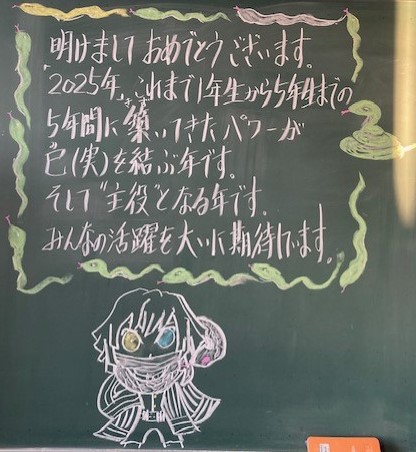 明けましておめでとうございます。
2025年、これまで1年生から5年生までの
5年間に築いてきたパワーが
巳(実)を結ぶ年です。
そして"主役"となる年です。
みんなの活躍を大いに期待しています。